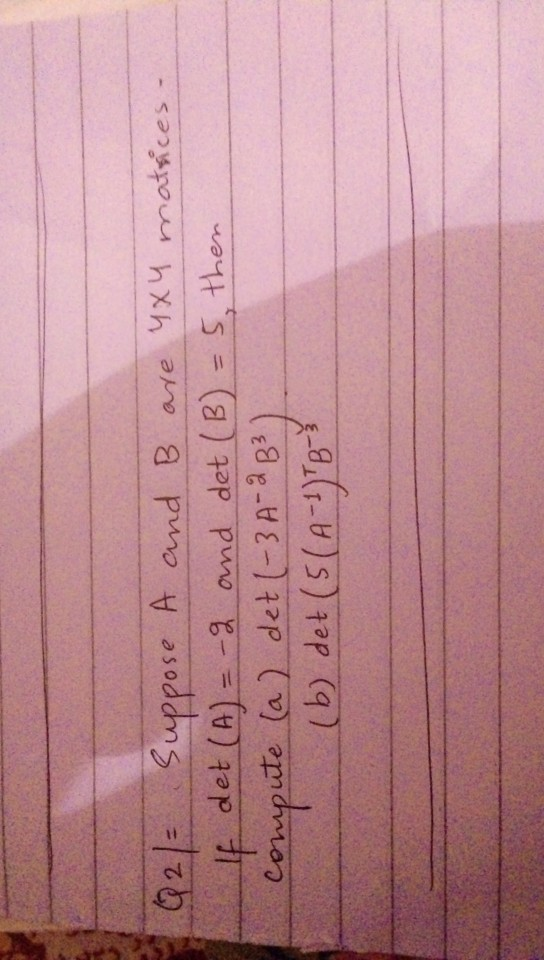 Q2|= Suppose A and B are 4x4 matrices.
If det (A) = -2 and det (B) = 5, then
compute (a) det (-3 A⁻² B³)
(b) det (5 (A⁻¹)ᵀ B⁻³